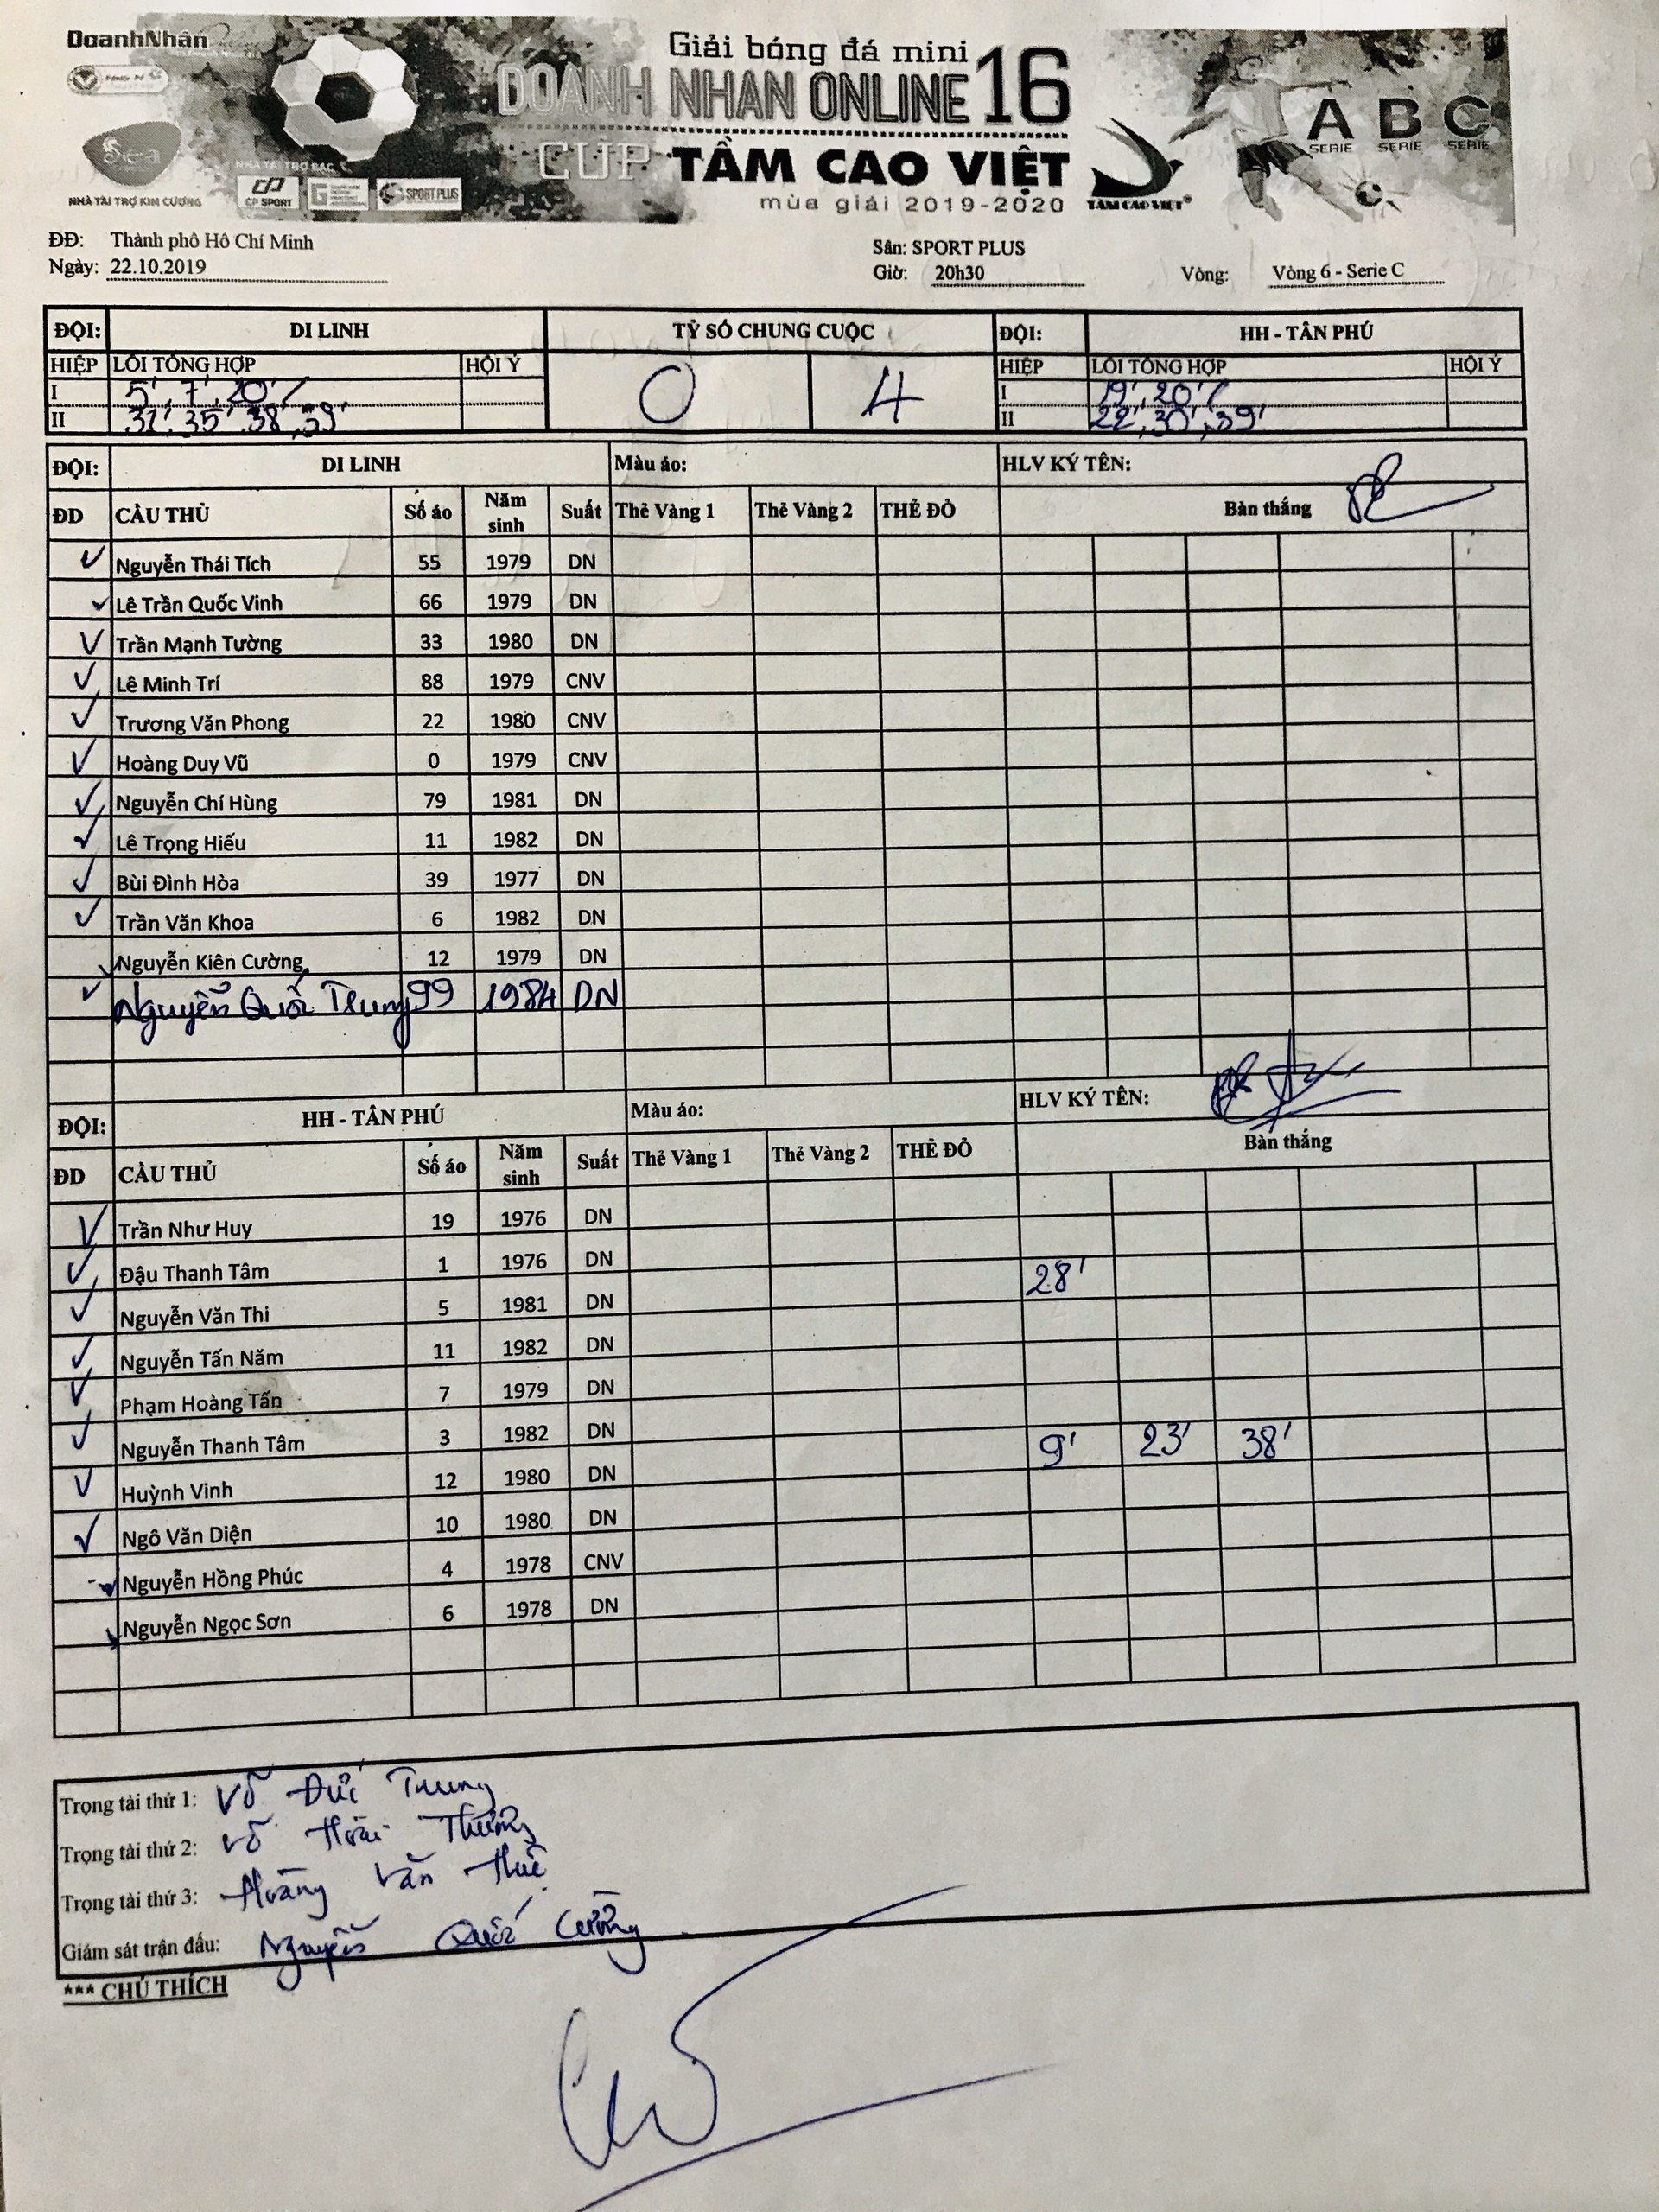 DoanhNhân
Giải bóng đá mini
DOANH NHAN ONLINE 16
CUP TẦM CAO VIỆT
mùa giải 2019-2020
TẦM CAO VIỆT®
A B C
SERIE SERIE SERIE
NHÀ TÀI TRỢ BẠC
CP SPORT
SPORT PLUS
NHÀ TÀI TRỢ KIM CƯƠNG
ĐĐ: Thành phố Hồ Chí Minh
Sân: SPORT PLUS
Ngày: 22.10.2019
Giờ: 20h30
Vòng: Vòng 6 - Serie C
ĐỘI: DI LINH TỶ SỐ CHUNG CUỘC ĐỘI: HH - TÂN PHÚ
HIỆP LỖI TỔNG HỢP HỘI Ý 0 4 HIỆP LỖI TỔNG HỢP HỘI Ý
I 5', 7', 20' / I 19', 20' /
II 31', 35', 38', 39' II 22', 30', 39'
ĐỘI: DI LINH Màu áo: HLV KÝ TÊN:
ĐD CẦU THỦ Số áo Năm sinh Suất Thẻ Vàng 1 Thẻ Vàng 2 THẺ ĐỎ Bàn thắng
Nguyễn Thái Tích 55 1979 DN
Lê Trần Quốc Vinh 66 1979 DN
Trần Mạnh Tường 33 1980 DN
Lê Minh Trí 88 1979 CNV
Trương Văn Phong 22 1980 CNV
Hoàng Duy Vũ 0 1979 CNV
Nguyễn Chí Hùng 79 1981 DN
Lê Trọng Hiếu 11 1982 DN
Bùi Đình Hòa 39 1977 DN
Trần Văn Khoa 6 1982 DN
Nguyễn Kiên Cường 12 1979 DN
Nguyễn Quốc Trung 99 1984 DN
ĐỘI: HH - TÂN PHÚ Màu áo: HLV KÝ TÊN:
ĐD CẦU THỦ Số áo Năm sinh Suất Thẻ Vàng 1 Thẻ Vàng 2 THẺ ĐỎ Bàn thắng
Trần Như Huy 19 1976 DN
Đậu Thanh Tâm 1 1976 DN 28'
Nguyễn Văn Thi 5 1981 DN
Nguyễn Tấn Năm 11 1982 DN
Phạm Hoàng Tấn 7 1979 DN
Nguyễn Thanh Tâm 3 1982 DN 9' 23' 38'
Huỳnh Vinh 12 1980 DN
Ngô Văn Diện 10 1980 DN
Nguyễn Hồng Phúc 4 1978 CNV
Nguyễn Ngọc Sơn 6 1978 DN
Trọng tài thứ 1: Võ Đức Trung
Trọng tài thứ 2: Võ Hoài Thương
Trọng tài thứ 3: Hoàng Văn Huê
Giám sát trận đấu: Nguyễn Quốc Cường
*** CHÚ THÍCH